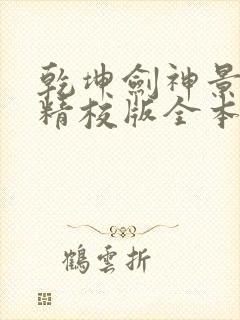 乾坤劍神景
精校版全本
鶴雲折